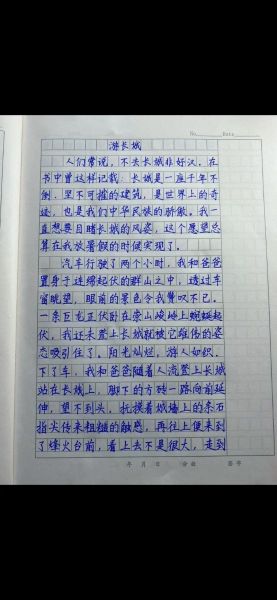 No.　Date
游长城
人们常说，不去长城非好汉，在
书中曾这样记载：长城是一座千年不
倒、坚不可摧的建筑，是世界上的奇
迹，也是我们中华民族的骄傲。我一
直想要目睹长城的风姿，这个愿望总
算在我放暑假的时候实现了。
汽车行驶了两个小时，我和爸爸
置身于连绵起伏的群山之中，透过车
窗眺望，眼前的景色令我赞叹不已。
一条巨龙正伏卧在崇山峻岭上蜿蜒起
伏，我还未登上长城就被它雄伟的姿
态吸引住了。阳光灿烂，游人如织，
下了车，我和爸爸随着人流登上长城
站在长城上，脚下的方砖一路向前延
伸，望不到头，抚摸着城墙上的条石
指尖传来粗糙的触感，再往上便来到
了烽火台前，看上去不是很大，走到
年 月 日